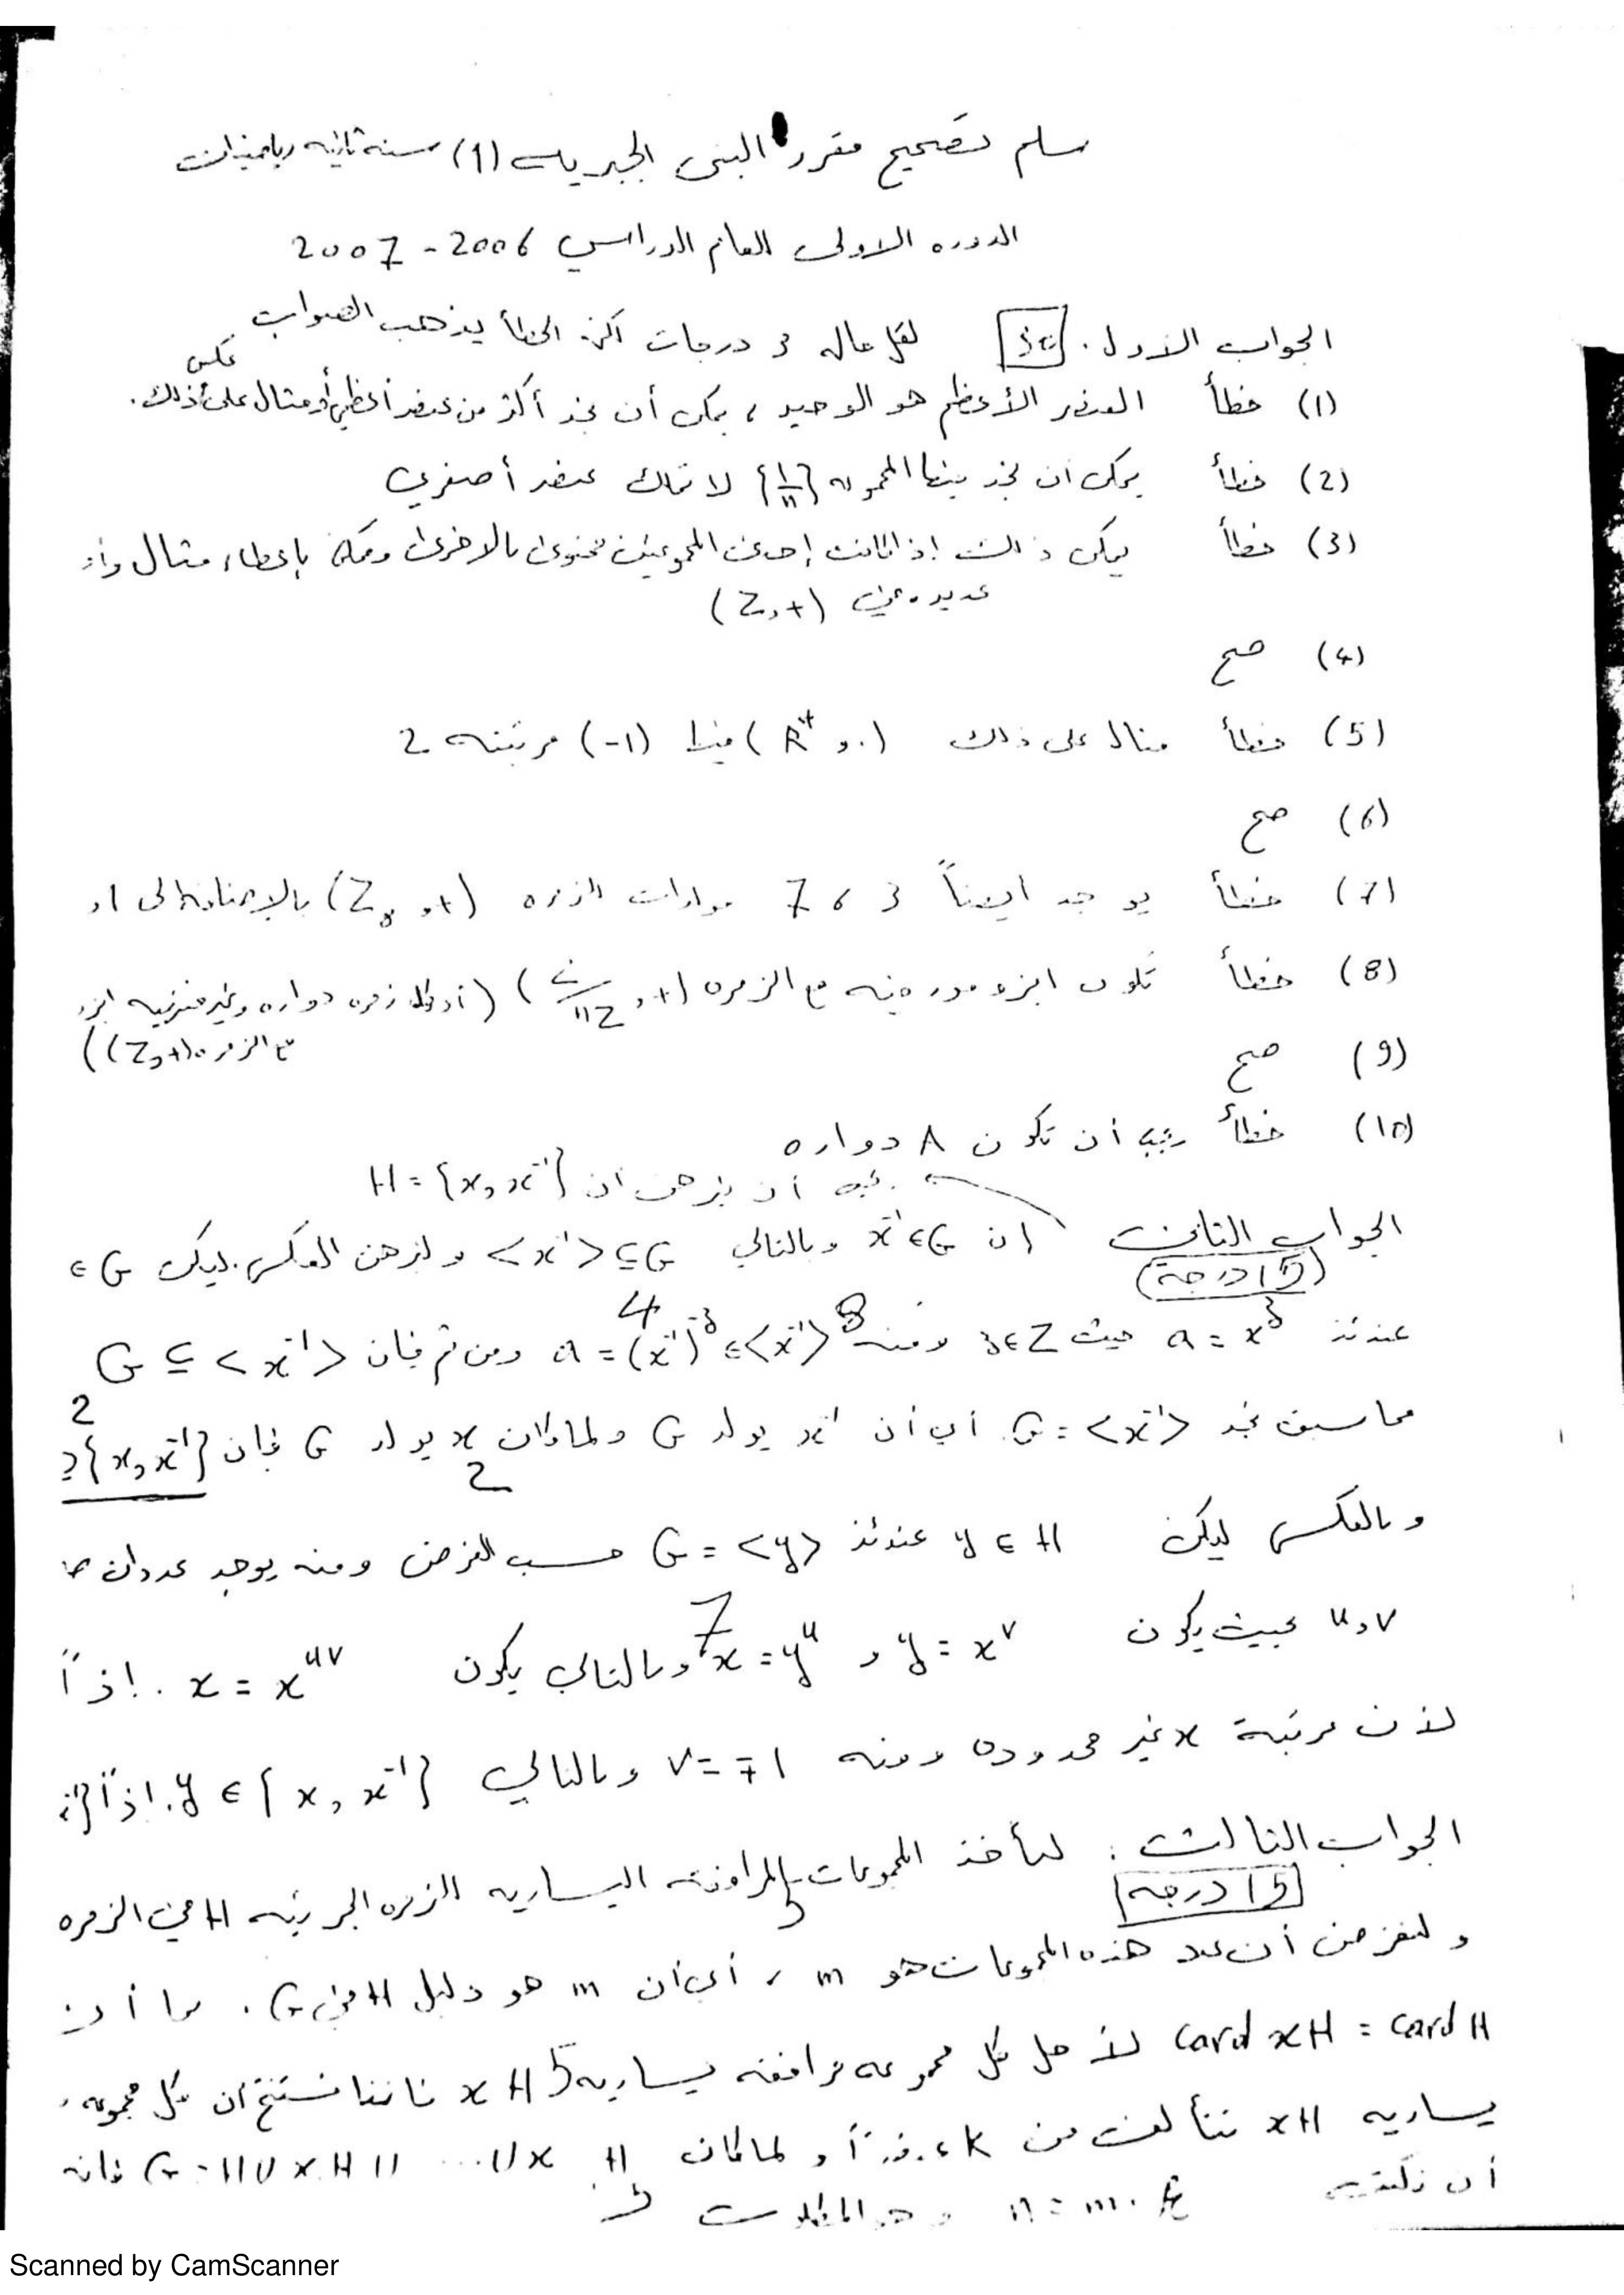 سلم تصحيح مقرر البنى الجبرية (1) سنة ثانية رياضيات
الدوره الاولى العام الدراسي 2006 - 2007
الجواب الاول. 30 لكل حاله 3 درجات الخطأ يذهب الصواب
عكس
(1) خطأ العنصر الأعظم هو الوحيد ، يمكن أن نجد أكثر من عنصر أعظمي أو مثال على ذلك.
(2) خطأ يمكن ان نجد بينما المجموعه {1/n} لا تملك عنصر أصغري
(3) خطأ يمكن ذلك إذا كانت إحدى المجموعتين محتوى بالاخرى ويمكن بإعطاء مثال
عديده في (Z,+)
(4) صح
(5) خطأ مثال على ذلك (R*, .) فيها (-1) مرتبته 2
(6) صح
(7) خطأ يوجد ايضاً 3 ، 7 مولدات الزمره (Z8 ,+) بالإضافه الى
(8) خطأ تكون ايزومورفيه مع الزمره (Z/nZ ,+) (أو كل زمره دواره وغير منتهيه
مع الزمره (Z,+))
(9) صح
(10) خطأ يجب أن تكون A دواره
يجب أن نبرهن ان H = {x, x⁻¹}
الجواب الثاني إن x⁻¹ ∈ G وبالتالي <x⁻¹> ⊆ G ولنبرهن العكس. ليكن ∈ G
(15 درجة)
عندئذ a = x³ حيث 3 ∈ Z ومنه a = (x⁻¹)⁻³ ∈ <x⁻¹> ومن ثم فإن G ⊆ <x⁻¹>
4 8
مما سبق نجد G = <x⁻¹> أي أن x⁻¹ يولد G ولما كان x يولد G فإن {x, x⁻¹}
2 2
وبالعكس ليكن y ∈ H عندئذ G = <y> حسب الفرض ومنه يوجد عددان
u,v بحيث يكون y = x^v و x = y^u وبالتالي يكون x = x^uv . إذاً
7
لأن مرتبة x غير محدوده ومنه v = ∓1 وبالتالي y ∈ {x, x⁻¹}. إذاً
الجواب الثالث : لنأخذ المجموعات المرافقه اليساريه للزمره الجزئيه H في الزمره
15 درجة 5
ولنفرض أن عدد هذه المجموعات هو m ، أي أن m هو دليل H في G . بما أن
card xH = card H لأجل كل مجموعه مرافقه يساريه xH فاننا نستنتج ان كل مجموعه
5
يساريه xH تتألف من k ولما كان G = فإنه
أن نكتب n = m . k وهو المطلوب
5
Scanned by CamScanner